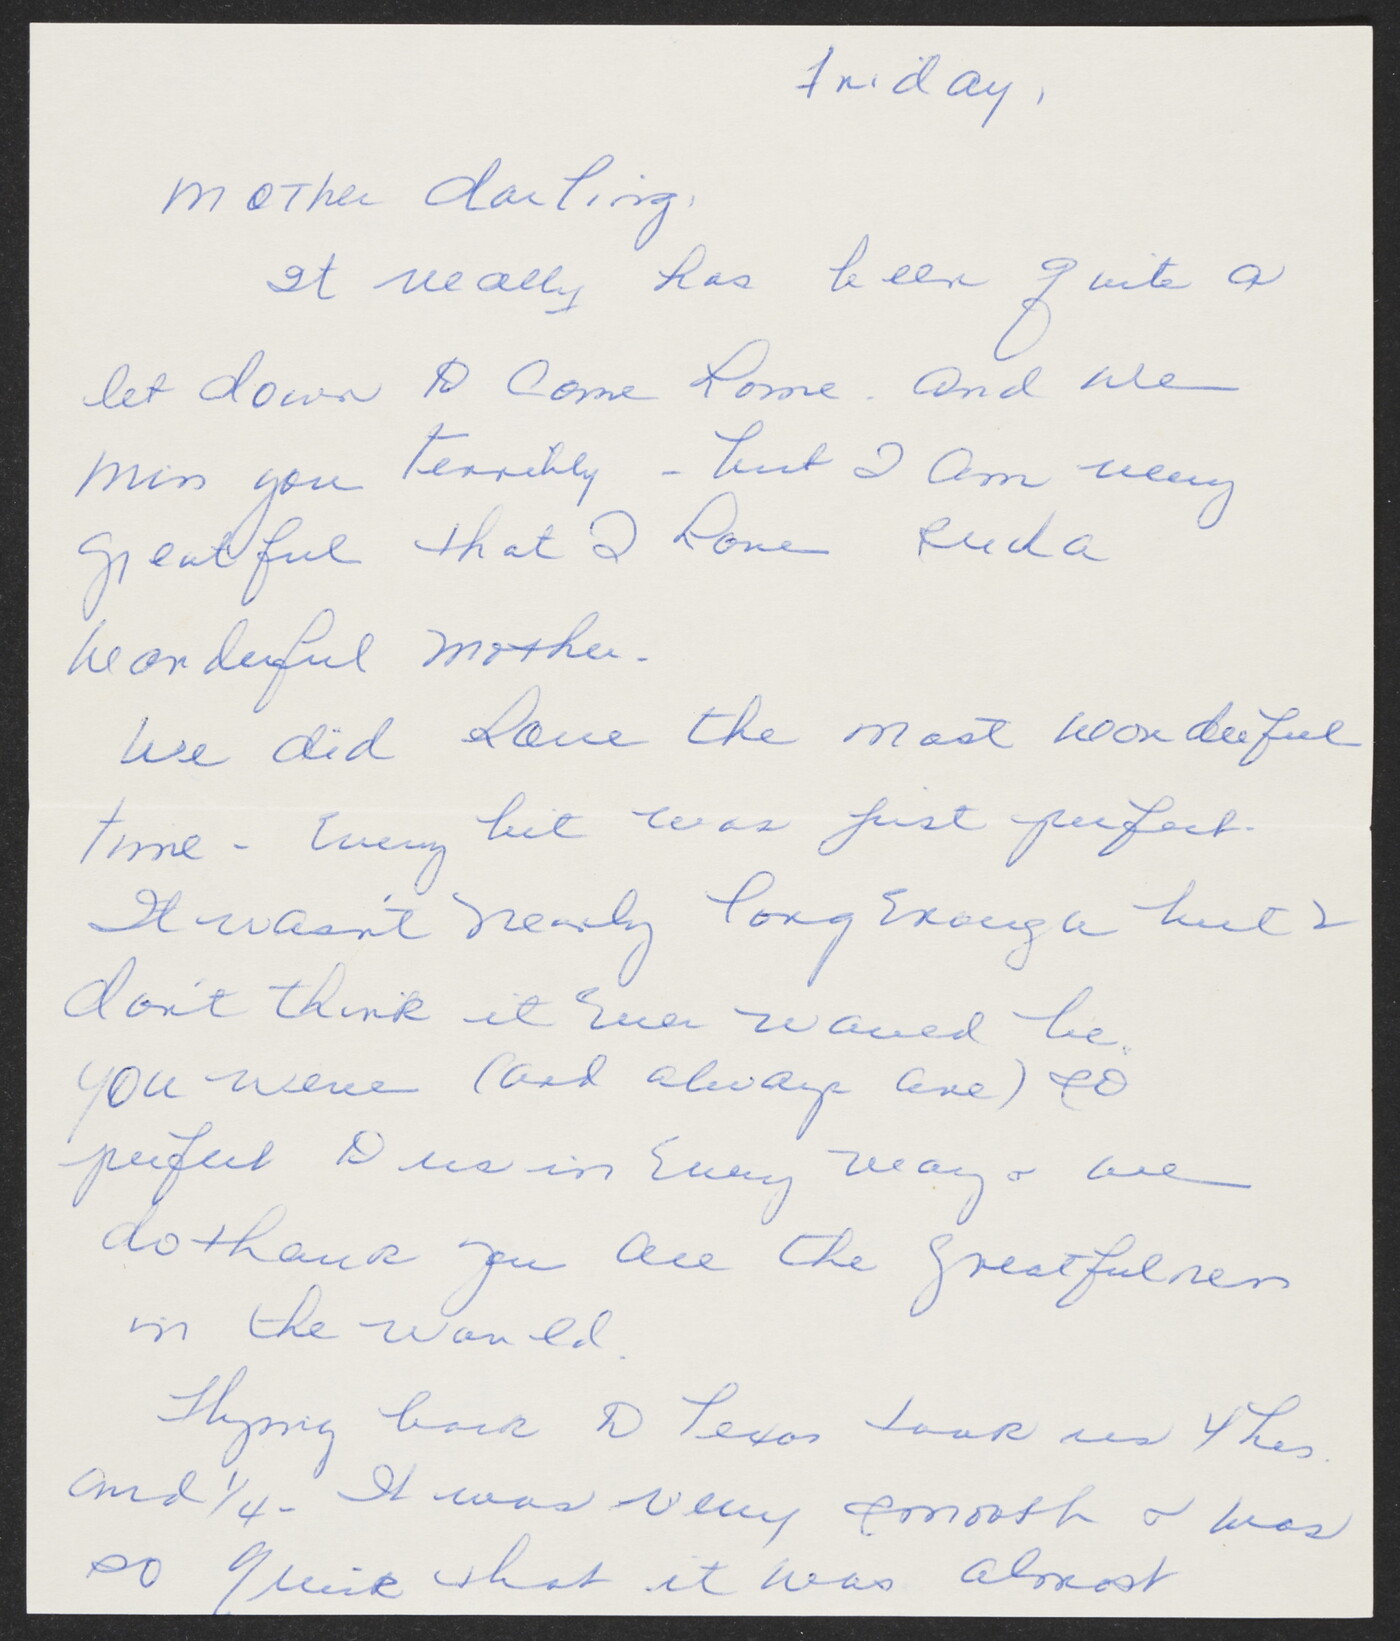 Friday,
Mother darling,
It really has been quite a
let down to come home. and we
miss you terribly - but I am very
greatful that I have such a
wonderful mother.
We did have the most wonderful
time - Every bit was just perfect.
It wasn't nearly long Enough but I
don't think it Ever would be.
You were (and always are) so
perfect to us in Every way & we
do thank you all the greatfulness
in the world.
Flying back to Texas took us 4 hrs.
and 1/4 - It was very smooth & was
so quick that it was almost